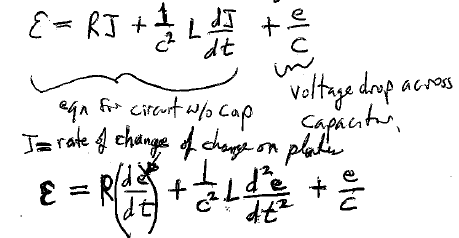 ℰ = RJ + 1/c² L dJ/dt + e/C
eqn for circuit w/o cap
voltage drop across
capacitor,
J = rate of change of charge on plates
ℰ = R(de/dt) + 1/c² L d²e/dt² + e/C